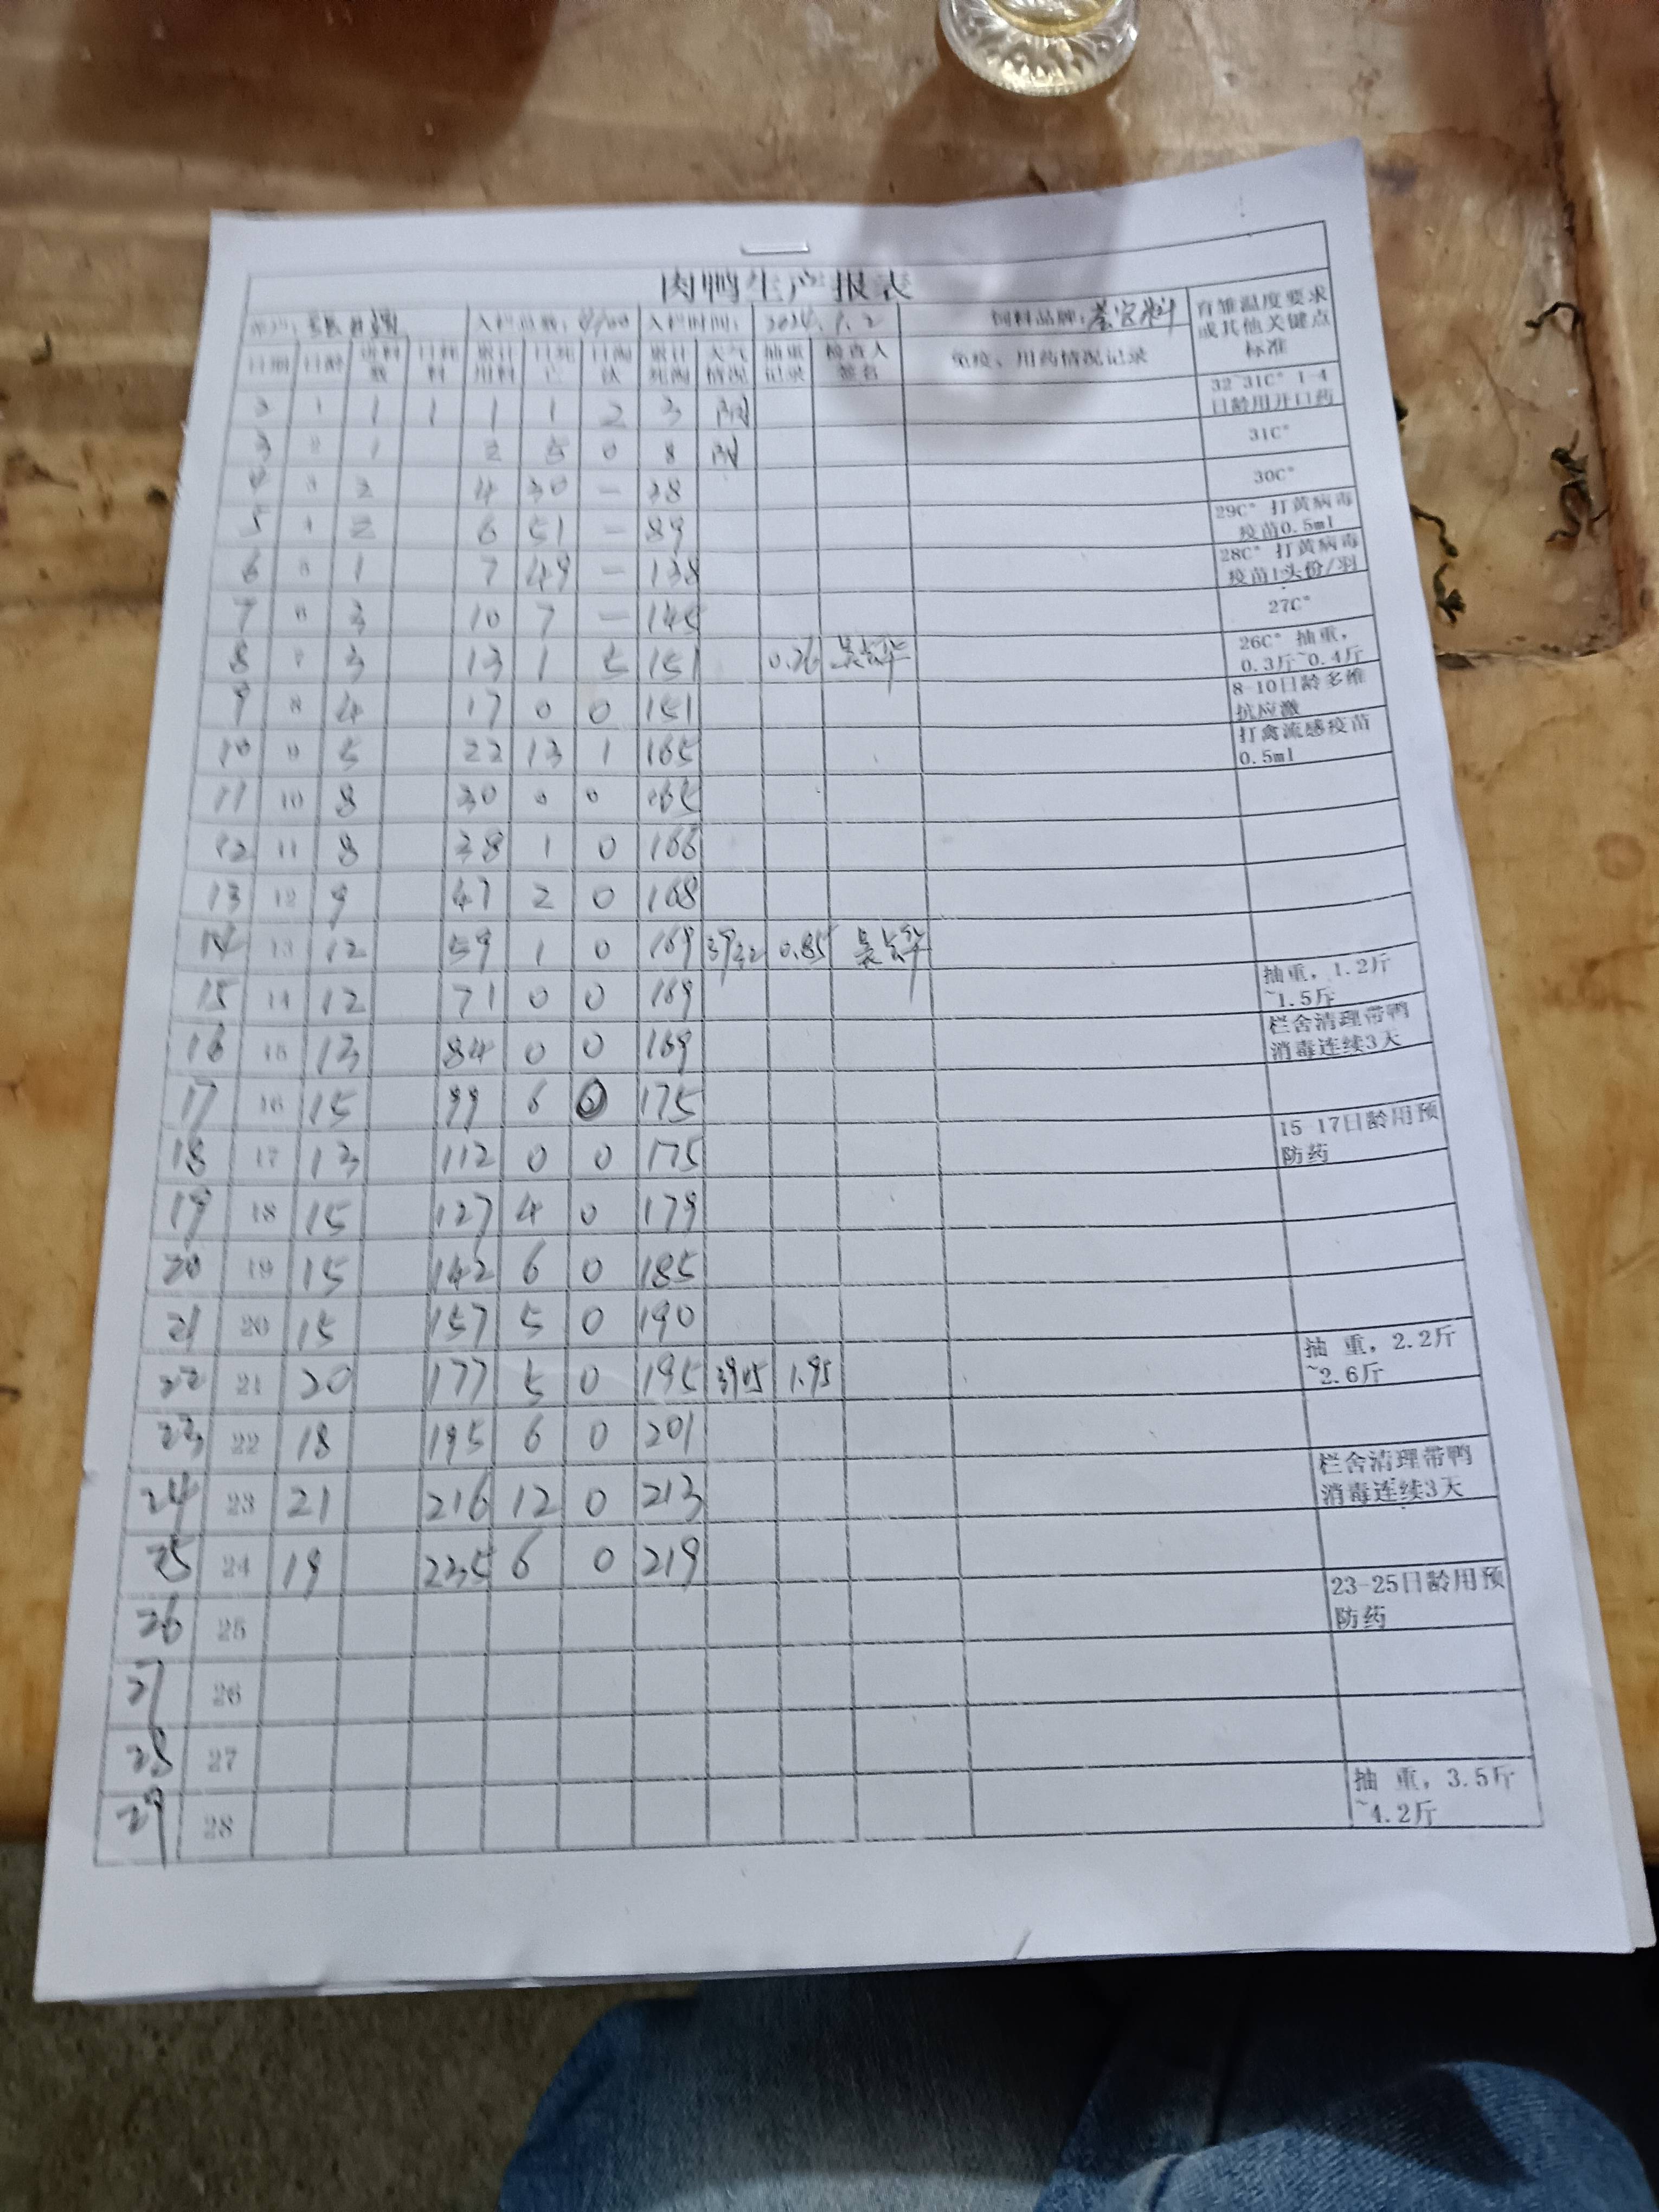 肉鸭生产报表
入栏总数: 入栏时间: 2024.1.2 饲料品牌: 育雏温度要求或其他关键点标准
日期 日龄 进料数 日耗料 累计用料 日死亡 日淘汰 累计死淘 天气情况 抽重记录 检查人签名 免疫、用药情况记录
2 1 1 1 1 1 2 3 阴 32~31C° 1-4日龄用开口药
3 2 1 2 5 0 8 阴 31C°
4 3 2 4 30 — 38 30C°
5 4 2 6 51 — 89 29C° 打黄病毒疫苗0.5ml
6 5 1 7 49 — 138 28C° 打黄病毒疫苗1头份/羽
7 6 3 10 7 — 145 27C°
8 7 3 13 1 5 151 0.26 26C° 抽重，0.3斤~0.4斤
9 8 4 17 0 0 151 8-10日龄多维抗应激
10 9 5 22 13 1 165 打禽流感疫苗0.5ml
11 10 8 30 0 0 165
12 11 8 38 1 0 166
13 12 9 47 2 0 168
14 13 12 59 1 0 169 3932 0.85
15 14 12 71 0 0 169 抽重，1.2斤~1.5斤
16 15 13 84 0 0 169 栏舍清理带鸭消毒连续3天
17 16 15 99 6 0 175
18 17 13 112 0 0 175 15-17日龄用预防药
19 18 15 127 4 0 179
20 19 15 142 6 0 185
21 20 15 157 5 0 190
22 21 20 177 5 0 195 3905 1.95 抽 重，2.2斤~2.6斤
23 22 18 195 6 0 201
24 23 21 216 12 0 213 栏舍清理带鸭消毒连续3天
25 24 19 235 6 0 219
26 25 23-25日龄用预防药
27 26
28 27
29 28 抽 重，3.5斤~4.2斤